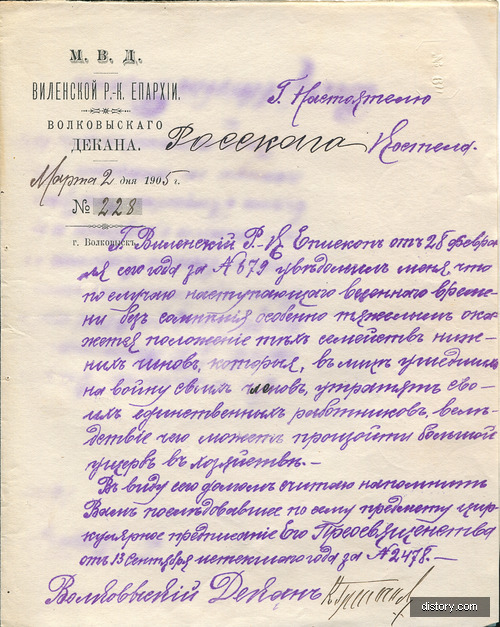 М. В. Д.
ВИЛЕНСКОЙ Р.-К. ЕПАРХІИ.
ВОЛКОВЫСКАГО
ДЕКАНА.
Марта 2 дня 1905 г.
№ 228
г. Волковыск.
Г. Настоятелю
Росскаго Костела.
Г. Виленскій Р.-К. Епископъ отъ 28 Февра-
ля сего года за № 679 увѣдомилъ меня что
по случаю наступающаго весеннаго време-
ни безъ сомнѣнія особенно тяжелымъ ока-
жется положеніе тѣхъ семействъ ниж-
нихъ чиновъ, которыя, въ лицѣ ушедшихъ
на войну своихъ членовъ, утратятъ сво-
ихъ единственныхъ работниковъ, вслѣ-
дствіе чего можетъ произойти большой
ущербъ въ хозяйствѣ.—
Въ виду сего долгомъ считаю напомнить
Вамъ послѣдовавшее по сему предмету цир-
кулярное предписаніе Его Преосвященства
отъ 13 Сентября истекшаго года за № 2478.—
Волковыскій Деканъ
distory.com